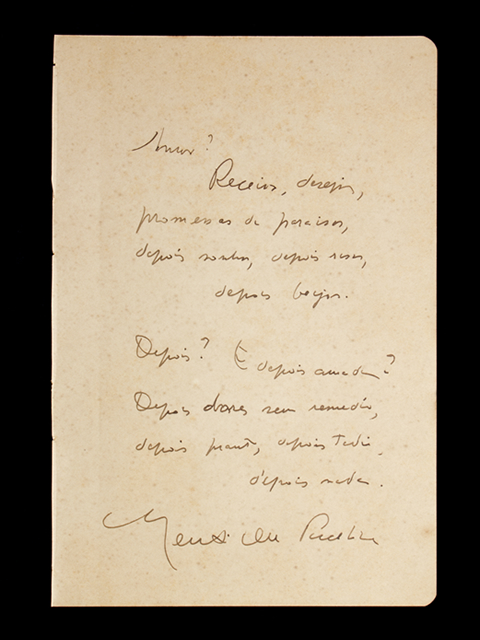 Amor?
Receios, desejos,
promessas de paraisos,
depois sonhos, depois risos,
depois beijos.
Depois? E depois amada?
Depois dores sem remedio,
depois pranto, depois tedio,
depois nada.